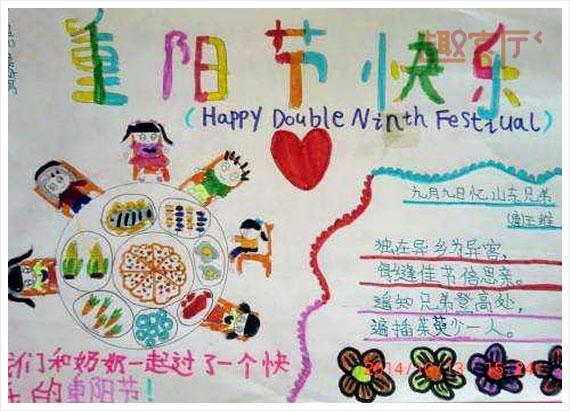 重阳节快乐
(Happy Double Ninth Festiual)
九月九日忆山东兄弟
唐王维
独在异乡为异客,
每逢佳节倍思亲。
遥知兄弟登高处,
遍插茱萸少一人。
们和奶奶一起过了一个快
乐的重阳节!